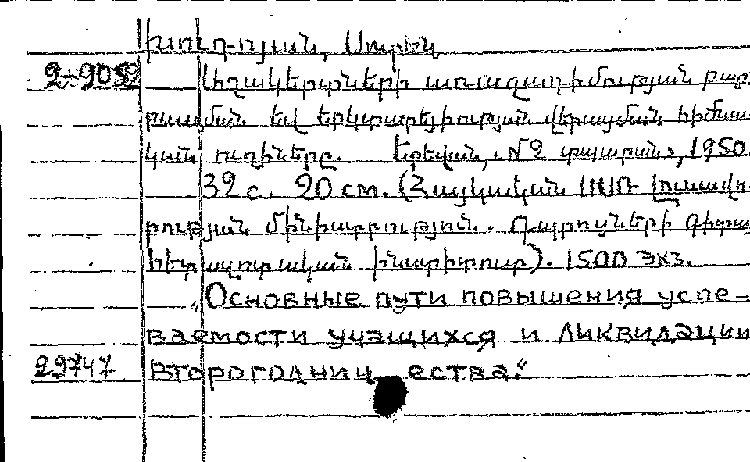 Խուդոյան, Սուրեն
2-9052 Աշակերտների առաջադիմության բար
ձրացման եվ երկտարեցիության վերացման հիմնա
կան ուղիները. Երեվան, №2 տպարան, 1950.
32 с. 20 см. (Հայկական ՍՍՌ Լուսավո
րության մինիստրություն. Դպրոցների գիտա
հետազոտական ինստիտուտ). 1500 экз.
„Основные пути повышения успе-
ваемости учащихся и ликвидации
29747 второгодничества."